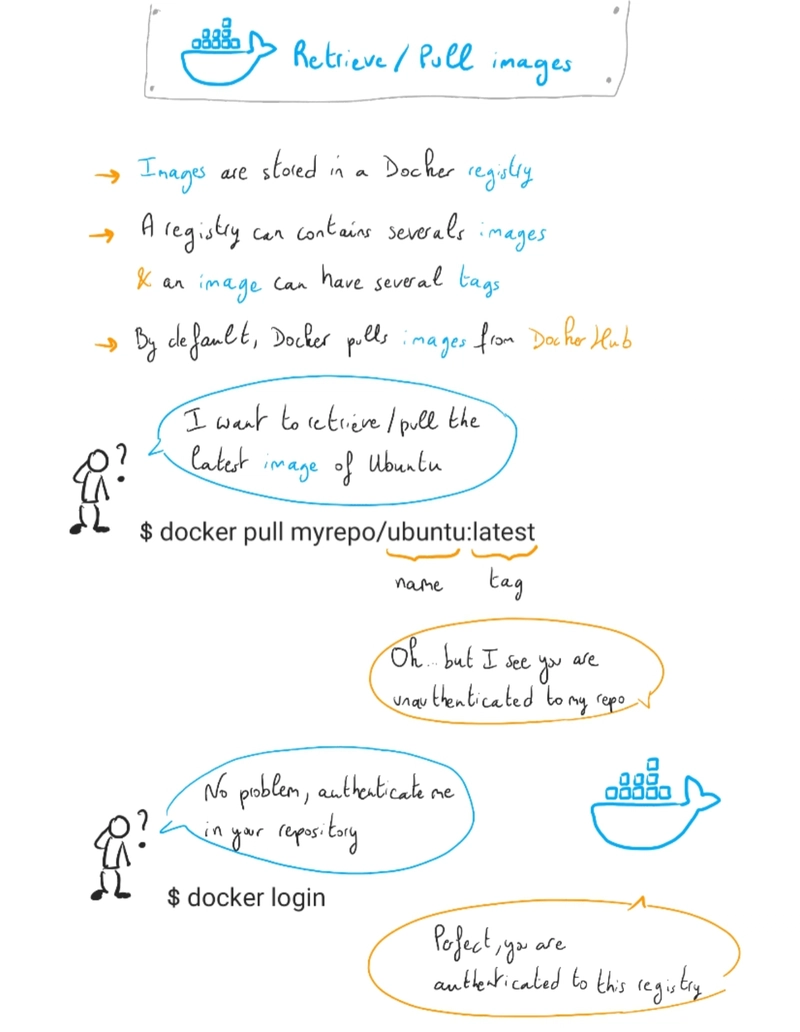 Retrieve / Pull images
→ Images are stored in a Docker registry
→ A registry can contains severals images
& an image can have several tags
→ By default, Docker pulls images from Docker Hub
I want to retrieve / pull the
latest image of Ubuntu
?
$ docker pull myrepo/ubuntu:latest
name tag
Oh... but I see you are
unauthenticated to my repo
No problem, authenticate me
in your repository
?
$ docker login
Perfect, you are
authenticated to this registry